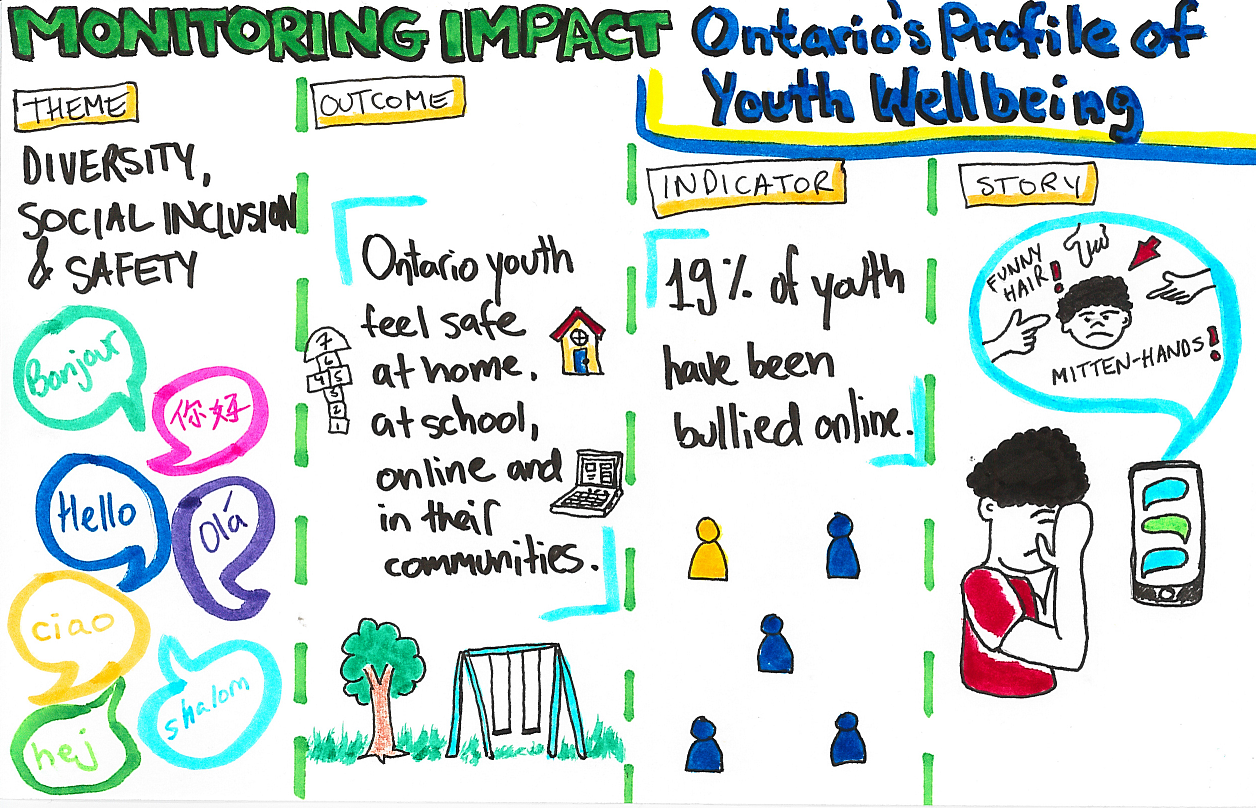 MONITORING IMPACT
Ontario's Profile of
Youth Wellbeing
THEME
DIVERSITY,
SOCIAL INCLUSION
& SAFETY
Bonjour
你好
Hello
Olá
ciao
shalom
hej
OUTCOME
Ontario youth
feel safe
at home,
at school,
online and
in their
communities.
7
6
4 5
3
2
1
INDICATOR
19% of youth
have been
bullied online.
STORY
FUNNY
HAIR!
MITTEN-HANDS!